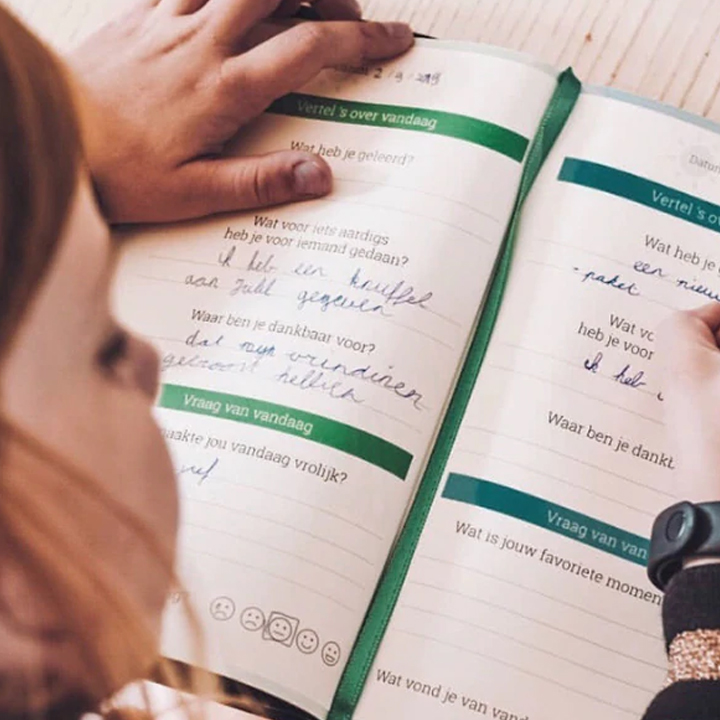 2/9/2019
Vertel 's over vandaag
Wat heb je geleerd?
Wat voor iets aardigs
heb je voor iemand gedaan?
ik heb een knuffel
aan Juul gegeven
Waar ben je dankbaar voor?
dat mijn vrindinen
getroost hebben
Vraag van vandaag
maakte jou vandaag vrolijk?
Datum
Vertel 's ov
Wat heb je
een nieuw
-paket
Wat vo
heb je voor
ik heb
Waar ben je dankb
Vraag van van
Wat is jouw favoriete momen
Wat vond je van vand